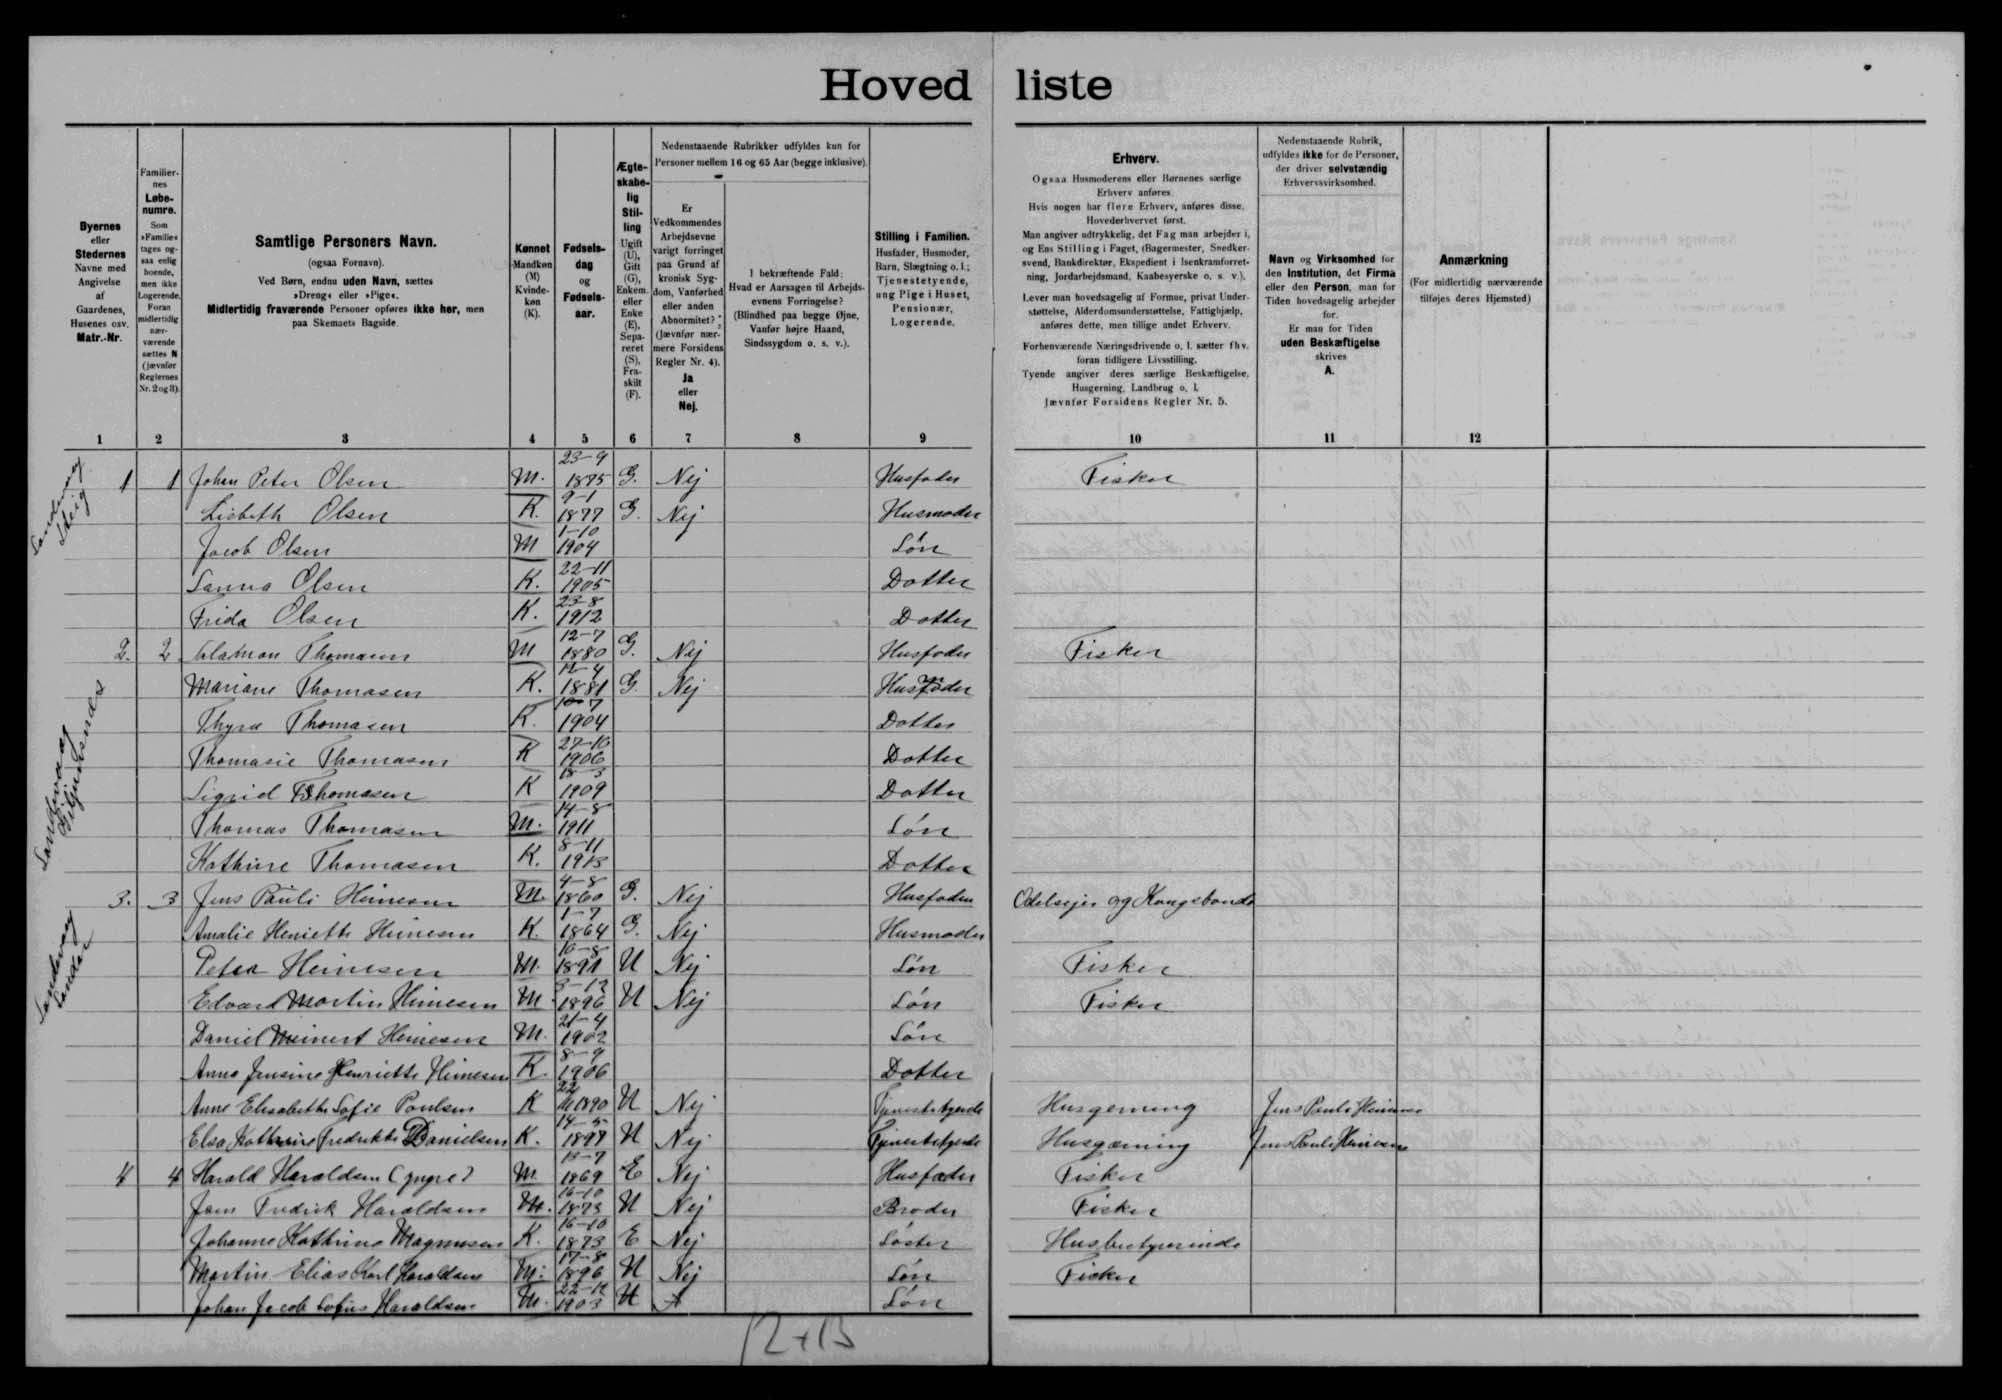 Hoved liste
Byernes
eller
Stedernes
Navne med
Angivelse
af
Gaardenes,
Husenes osv.
Matr.-Nr.
Familier-
nes
Løbe-
numre.
Som
»Familie«
tages og-
saa enlig
boende,
men ikke
Logerende.
Foran
midlertidig
nær-
værende
sættes N
(jævnfør
Reglernes
Nr. 2 og 3).
Samtlige Personers Navn.
(ogsaa Fornavn).
Ved Børn, endnu uden Navn, sættes
»Dreng« eller »Pige«.
Midlertidig fraværende Personer opføres ikke her, men
paa Skemaets Bagside.
Kønnet
Mandkøn
(M)
Kvinde-
køn
(K).
Fødsels-
dag
og
Fødsels-
aar.
Ægte-
skabe-
lig
Stil-
ling
Ugift
(U),
Gift
(G),
Enkem.
eller
Enke
(E),
Sepa-
reret
(S),
Fra-
skilt
(F).
Nedenstaaende Rubrikker udfyldes kun for
Personer mellem 16 og 65 Aar (begge inklusive).
Er
Vedkommendes
Arbejdsevne
varigt forringet
paa Grund af
kronisk Syg-
dom, Vanførhed
eller anden
Abnormitet?
(Jævnfør nær-
mere Forsidens
Regler Nr. 4).
Ja
eller
Nej.
I bekræftende Fald:
Hvad er Aarsagen til Arbejds-
evnens Forringelse?
(Blindhed paa begge Øjne,
Vanfør højre Haand,
Sindssygdom o. s. v.).
Stilling i Familien.
Husfader, Husmoder,
Barn, Slægtning o. l.;
Tjenestetyende,
ung Pige i Huset,
Pensionær,
Logerende.
Erhverv.
Ogsaa Husmoderens eller Børnenes særlige
Erhverv anføres.
Hvis nogen har flere Erhverv, anføres disse,
Hovederhvervet først.
Man angiver udtrykkelig, det Fag man arbejder i,
og Ens Stilling i Faget, (Bagermester, Snedker-
svend, Bankdirektør, Ekspedient i Isenkramforret-
ning, Jordarbejdsmand, Kaabesyerske o. s. v.).
Lever man hovedsagelig af Formue, privat Under-
støttelse, Alderdomsunderstøttelse, Fattighjælp,
anføres dette, men tillige andet Erhverv.
Forhenværende Næringsdrivende o. l. sætter fhv.
foran tidligere Livsstilling.
Tyende angiver deres særlige Beskæftigelse,
Husgerning, Landbrug o. l.
Jævnfør Forsidens Regler Nr. 5.
Nedenstaaende Rubrik,
udfyldes ikke for de Personer,
der driver selvstændig
Erhvervsvirksomhed.
Navn og Virksomhed for
den Institution, det Firma
eller den Person, man for
Tiden hovedsagelig arbejder
for.
Er man for Tiden
uden Beskæftigelse
skrives
A.
Anmærkning
(For midlertidig nærværende
tilføjes deres Hjemsted)
1 2 3 4 5 6 7 8 9 10 11 12
1 1 Johan Peter Olsen M. 23-9 1875 G. Nej Husfader Fisker
Lisbeth Olsen K. 9-1 1877 G. Nej Husmoder
Jacob Olsen M 1-10 1904 Søn
Sanna Olsen K. 22-11 1905 Datter
Frida Olsen K. 23-8 1912 Datter
2. 2 Thomasen M 12-7 1880 G. Nej Husfader Fisker
Mariane Thomasen K. 12-4 1881 G. Nej Husmoder
Thyra Thomasen K. 10-7 1904 Datter
Thomasie Thomasen K 27-10 1906 Datter
Sigrid Thomasen K 18-3 1909 Datter
Thomas Thomasen M. 14-8 1911 Søn
Kathrine Thomasen K. 8-11 1913 Datter
3. 3 Jens Pauli Heinesen M. 4-8 1860 G. Nej Husfader Odelsejer og Kongebonde
Amalie Heniette Heinesen K. 1-7 1864 G. Nej Husmoder
Heinesen M. 10-8 1891 U Nej Søn Fisker
Edvard Martin Heinesen M. 1896 U Nej Søn Fisker
Daniel Meinert Heinesen M. 21-4 1902 Søn
Anna Jensine Henriette Heinesen K. 8-9 1906 Datter
Anne Elisabeth Sofie Poulsen K 22 1890 U Nej Tjenestetyende Husgerning Jens Pauli Heinesen
Elsa Kathrine Fredrikke Danielsen K. U Nej Tjenestetyende Husgærning Jens Pauli Heinesen
4 4 Harald Haraldsen (yngre) M. 13-7 1869 E Nej Husfader Fisker
Fredrik Haraldsen M. 16-10 1873 U Nej Broder Fisker
Johanne Kathrine Magnusen K. 16-10 1873 E Nej Søster Husbestyrerinde
Martin Elias Karl Haraldsen M. 17-8 1896 U Nej Søn Fisker
Johan Jacob Sofus Haraldsen M. 1903 U Søn
12+13